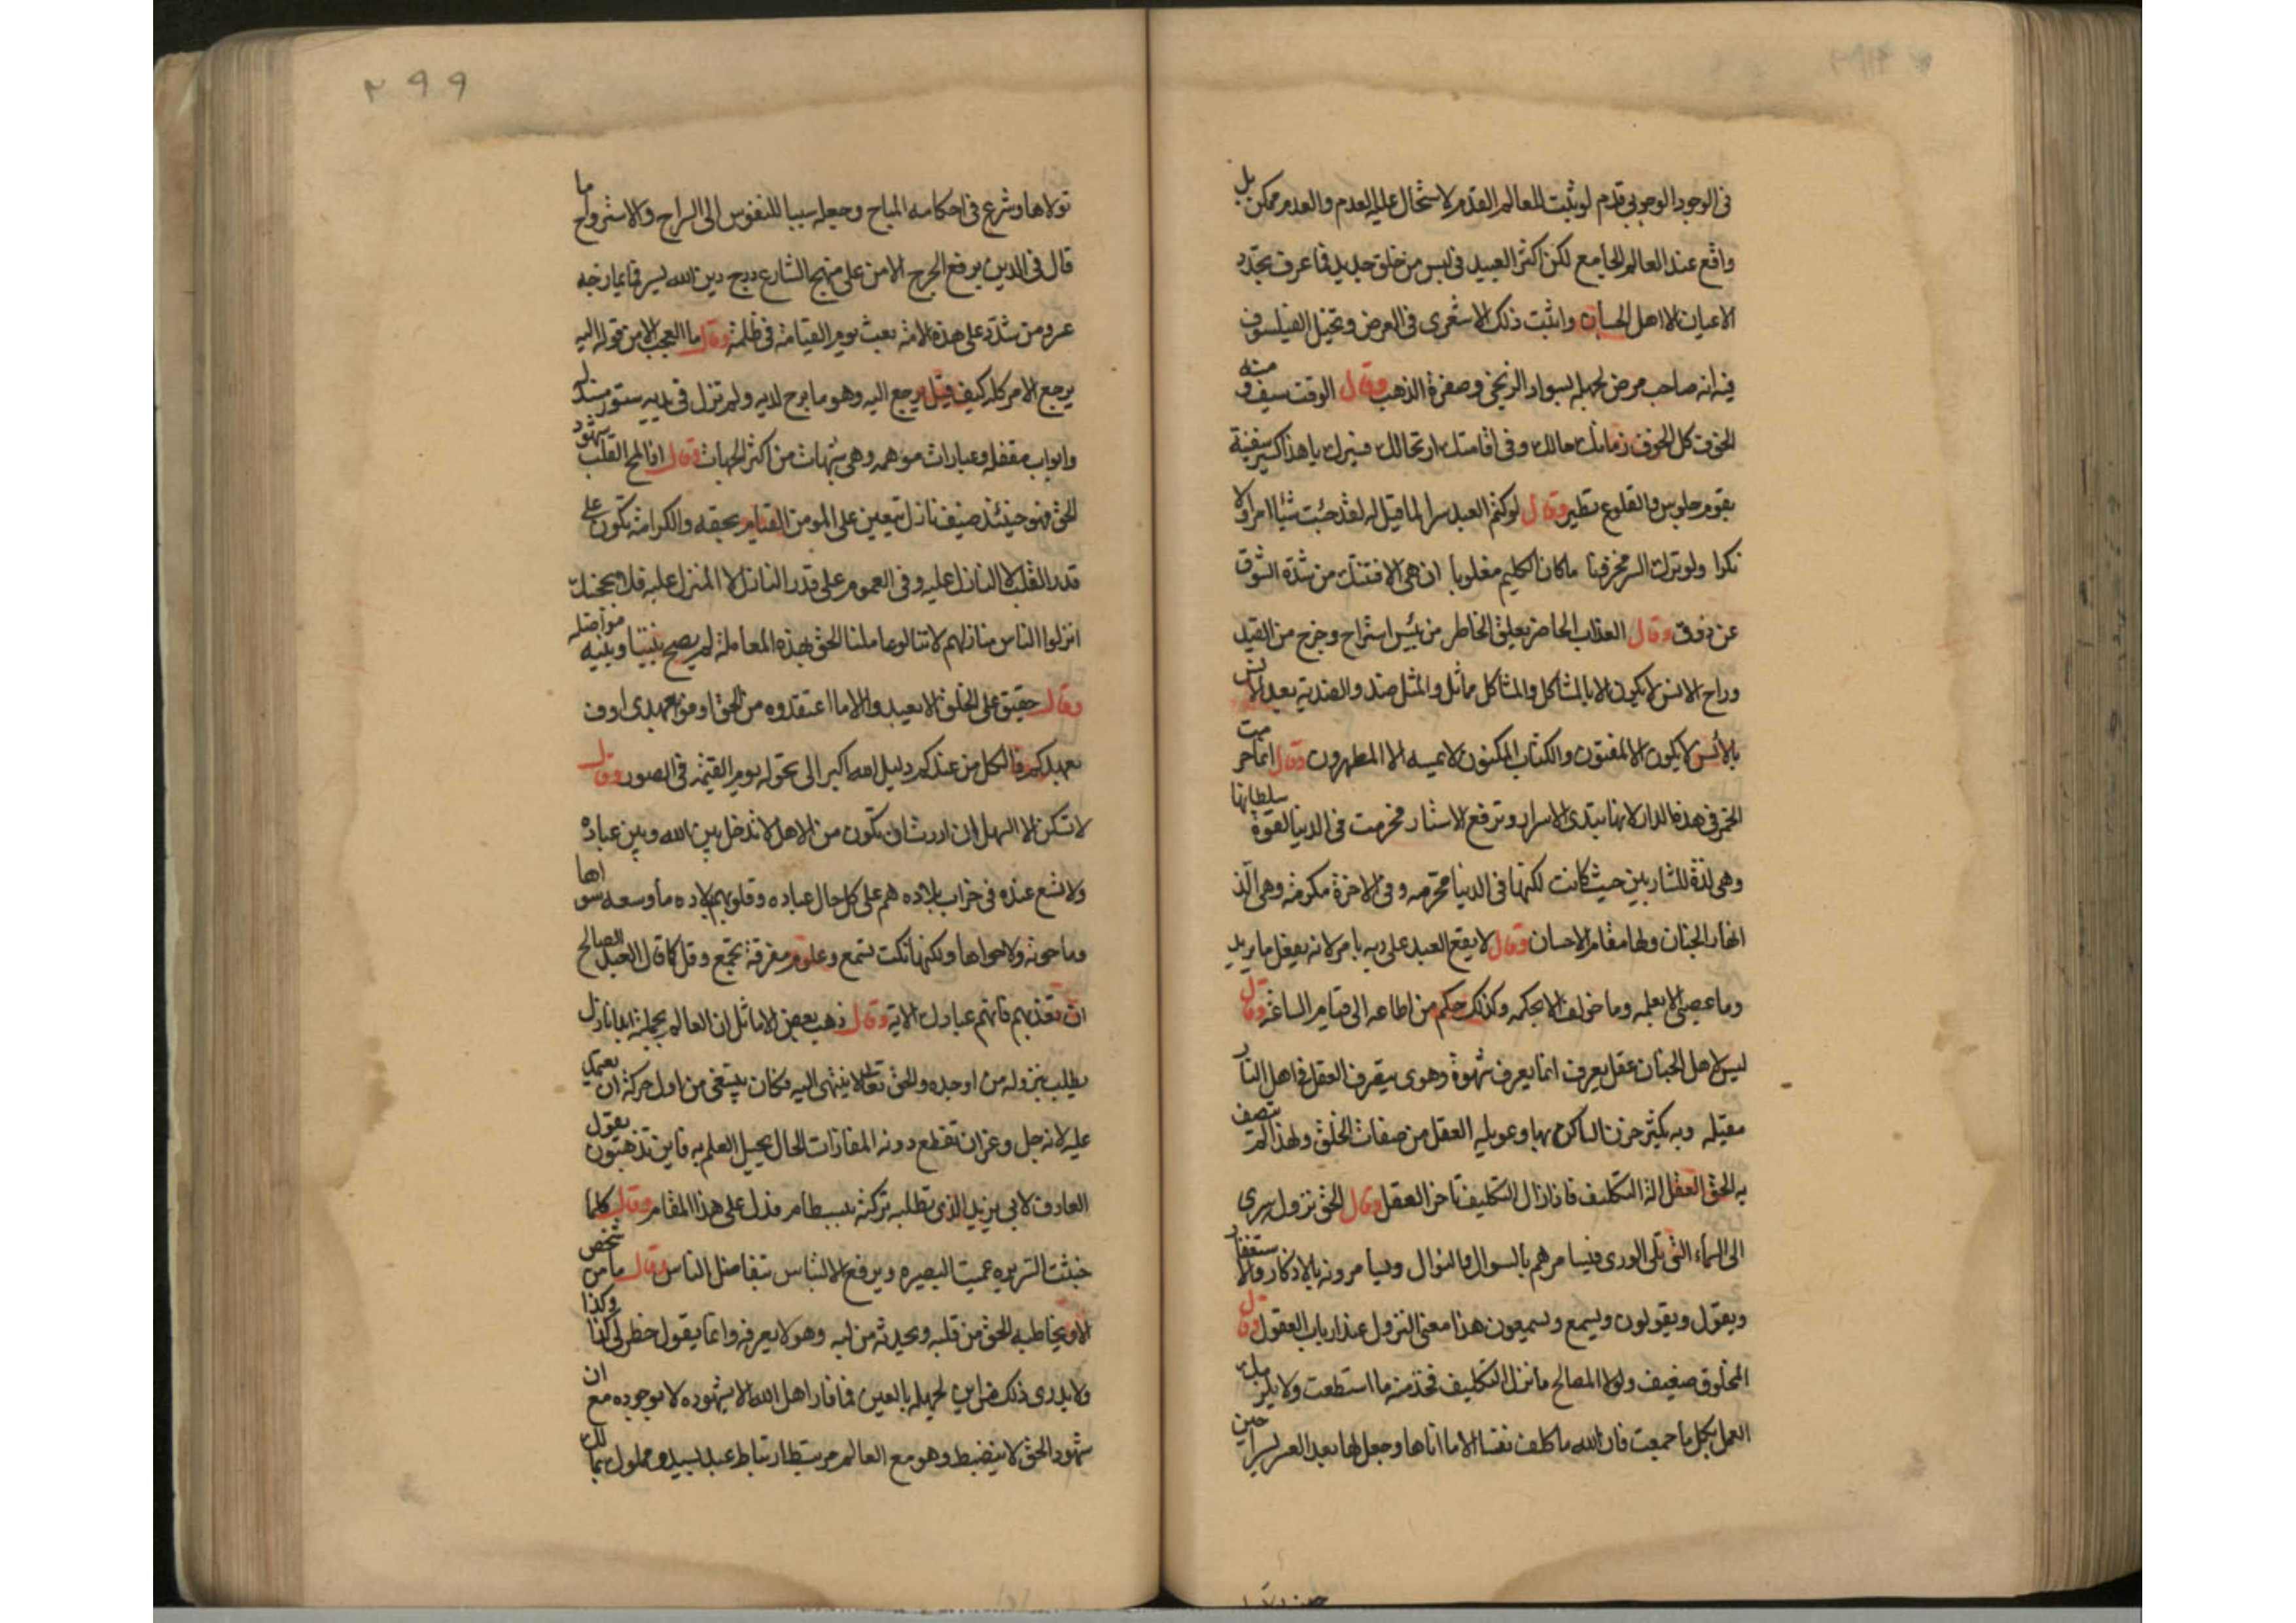 فى الوجود الوجوبى قدم لو ثبت للعالم القدم لاستحال عليه العدم والعدم ممكن بل
واقع عند العالم الجامع لكن اكثر العبيد فى لبس من خلق جديد فما عرف تجدد
الاعيان الا اهل الحسبان واثبت ذلك الاشعرى فى العرض وتخيل الفيلسوف
فيه انه صاحب مرض لجهله بسواد الزنجى وصفرة الذهب وقال الوقت سيف ومنه
الخوف كل الخوف زمانك حالك وفى اقامتك ارتحالك فسيرك يا هذا كسير سفينة
بقوم جلوس والقلوع تطير وقال لو كتم العبد سرا لما قيل له لقد جئت شيئا امرا ولا
نكرا ولو ترك السر مخزونا ما كان الكليم مغلوبا ان هى الا فتنتك من شدة الشوق
عن ذوق وقال العذاب الحاضر تعلق الخاطر من يئس استراح وخرج من القيد
وراح الانس لا يكون الا بالمشاكل والمشاكل مماثل والمثل ضد والضدية بعد الانس
بالأنس لا يكون الا لمفتون والكتاب المكنون لا يمسه الا المطهرون وقال انما حرمت
الخمر فى هذه الدار لانها تبدى الاسرار وترفع الاستار فحرمت فى الدنيا لقوة سلطانها
وهى لذة للشاربين حيث كانت لكنها فى الدنيا محرمه وفى الاخرة مكرمه وهى الذ
انهار الجنان ولها مقام الاحسان وقال لا يقع العبد على ربه بامر لانه يفعل ما يريد
وما عصى الا بعلمه وما خولف الا بحكمه وكذلك حكم من اطاعه الى قيام الساعة وقال
ليس لاهل الجنان عقل يعرف انما يعرف شهوة وهوى يتصرف العقل فى اهل النار
مقيله وبه يكثر حزن الساكن بها وعويله العقل من صفات الخلق ولهذا لم يتصف
به الحق العقل الة التكليف فاذا زال التكليف تاخر العقل وقال الحق نزول سرى
الى السماء التى تلى الورى فيسامرهم بالسوال والنوال ويسامرونه بالاذكار والاستغفار
ويقول ويقولون ويسمع ويسمعون هذا معنى النزول عند ارباب العقول وقال
المخلوق ضعيف ولولا المصالح ما نزل التكليف فخذ منه ما استطعت ولا يلزمك
العمل بكل ما جمعت فان الله ما كلف نفسا الا ما اتاها وجعل لها بعد العسر يسرا حين
تولاها وشرع فى احكامه المباح وجعله سببا للنفوس الى السراح والاسترواح ما
قال فى الدين برفع الحرج الا من على منهج الشارع درج دين الله يسر فما يمازجه
عسر ومن شدد على هذه الامة بعث يوم القيامة فى ظلمة وقال ما العجب الا من قوله اليه
يرجع الامر كله كيف قيل يرجع اليه وهو ما برح لديه ولم تزل فى يديه ستور مسدله
وابواب مقفله وعبارات موهمه وهى شبهات من اكثر الجهات وقال اذا لمح القلب شهود
الحق فهو حينئذ ضيف نازل يتعين على المومن القيام بحقه والكرامة تكون على
قدر القلب لا النازل عليه وفى العموم على قدر النازل لا المنزل عليه فلا يحجبنك
انزلوا الناس منازلهم لانا لو عاملنا الحق بهذه المعاملة لم يصح بيننا وبينه مواصله
وقال حقيق على الخلق الا يعبدوا الا ما اعتقدوه من الحق اوفوا بعهدى اوف
بعهدكم فالكل من عندكم دليل الله اكبر الى تحوله يوم القيمة فى الصور وقال
لا تركن الا الى الاهل ان اردت ان تكون من الاهل لا تدخل بين الله وبين عباده
ولا تسع عنده فى خراب بلاده هم على كل حال عباده وقلوبهم بلاده ما وسعه سواها
وما حوته ولا حواها ولكنها نكت تسمع وعلوم مفرقة تجمع وقل كما قال العبد الصالح
ان تعذبهم فانهم عبادك الاية وقال ذهب بعض الاماثل ان العالم بجملته ابدا نازل
يطلب بنزوله من اوجده والحق تعالى لا ينتهى اليه فكان ينبغى من اول حركة ان يعتمد
عليه لانه جل وعز ان تقطع دونه المفازات الحال يحيل العلم به فاين تذهبون يقول
العارف لابى يزيد الذى تطلبه تركته ببسطام فدل على هذا المقام وقال كلما
خبثت السريره عميت البصيره وبرفع الالتباس تتفاضل الناس وقال ما من شخص
الا ويخاطبه الحق من قلبه ويحدثه من لبه وهو لا يعرفه وانما يقول خطر لى كذا وكذا
ولا يدرى ذلك من اين لجهله بالعين فما فاز اهل الله الا بشهوده لا بوجوده مع ان
شهود الحق لا ينضبط وهو مع العالم مرتبط ارتباط عبد بسيده ومملوك بمالك
٢٩٩